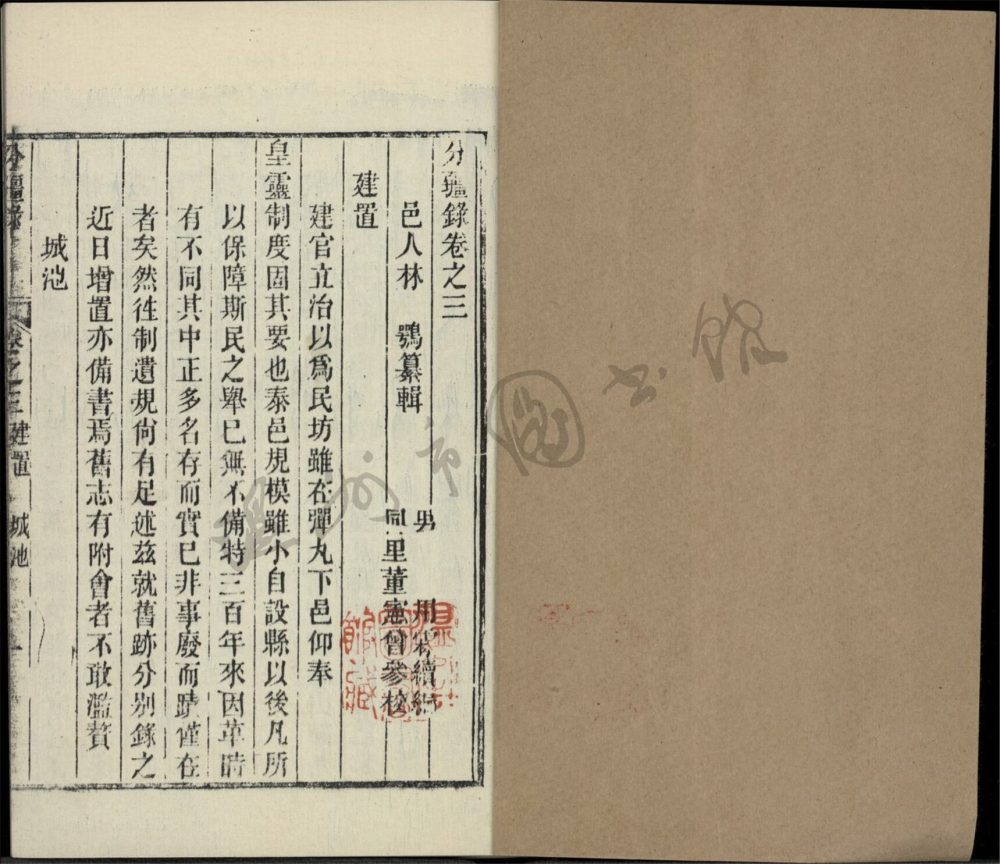 分疆錄卷之三
邑人林　鶚纂輯
男　用霖續編
同里董憲曾參校
建置
建官立治以爲民坊雖在彈丸下邑仰奉
皇靈制度固其要也泰邑規模雖小自設縣以後凡所
以保障斯民之舉巳無不備特三百年來因革時
有不同其中正多名存而實巳非事廢而蹟僅在
者矣然徃制遺規尙有足述茲就舊跡分別錄之
近日增置亦備書焉舊志有附會者不敢濫贅
城池
分疆錄　卷之三建置　城池
溫州市圖書館